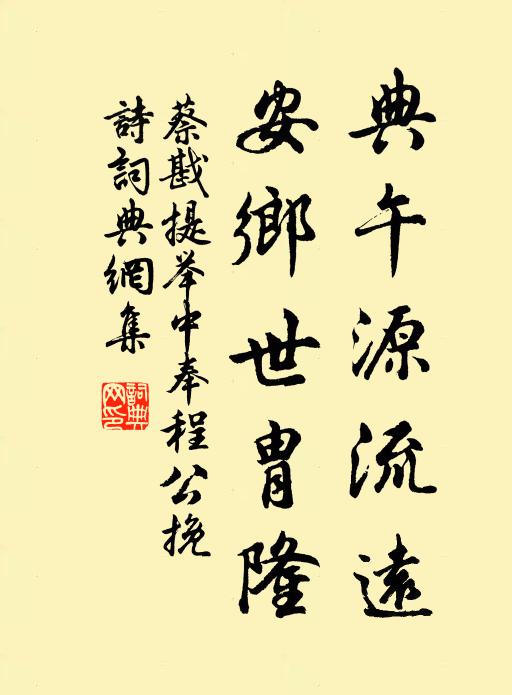 典午源流遠
安鄉世胄隆
蔡戡提举中奉程公挽
詩詞典網集
詞典網印